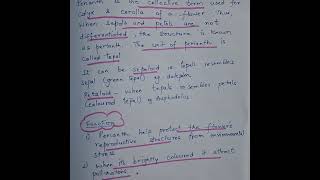 Perianth is the collective term used for
calyx & corolla of a flower. Thus,
when sepals and petals are not
differentiated, the structure is known
as perianth. The unit of perianth is
called tepal
It can be sepaloid ie tepals resembles
sepal (green tepal) eg
Petaloid - when tepals resembles petals
(coloured tepal) eg Asphodelus
Function
1) Perianth help protect the flower's
reproductive structures from environmental
stress
2) When its brightly coloured it attract
pollinators.